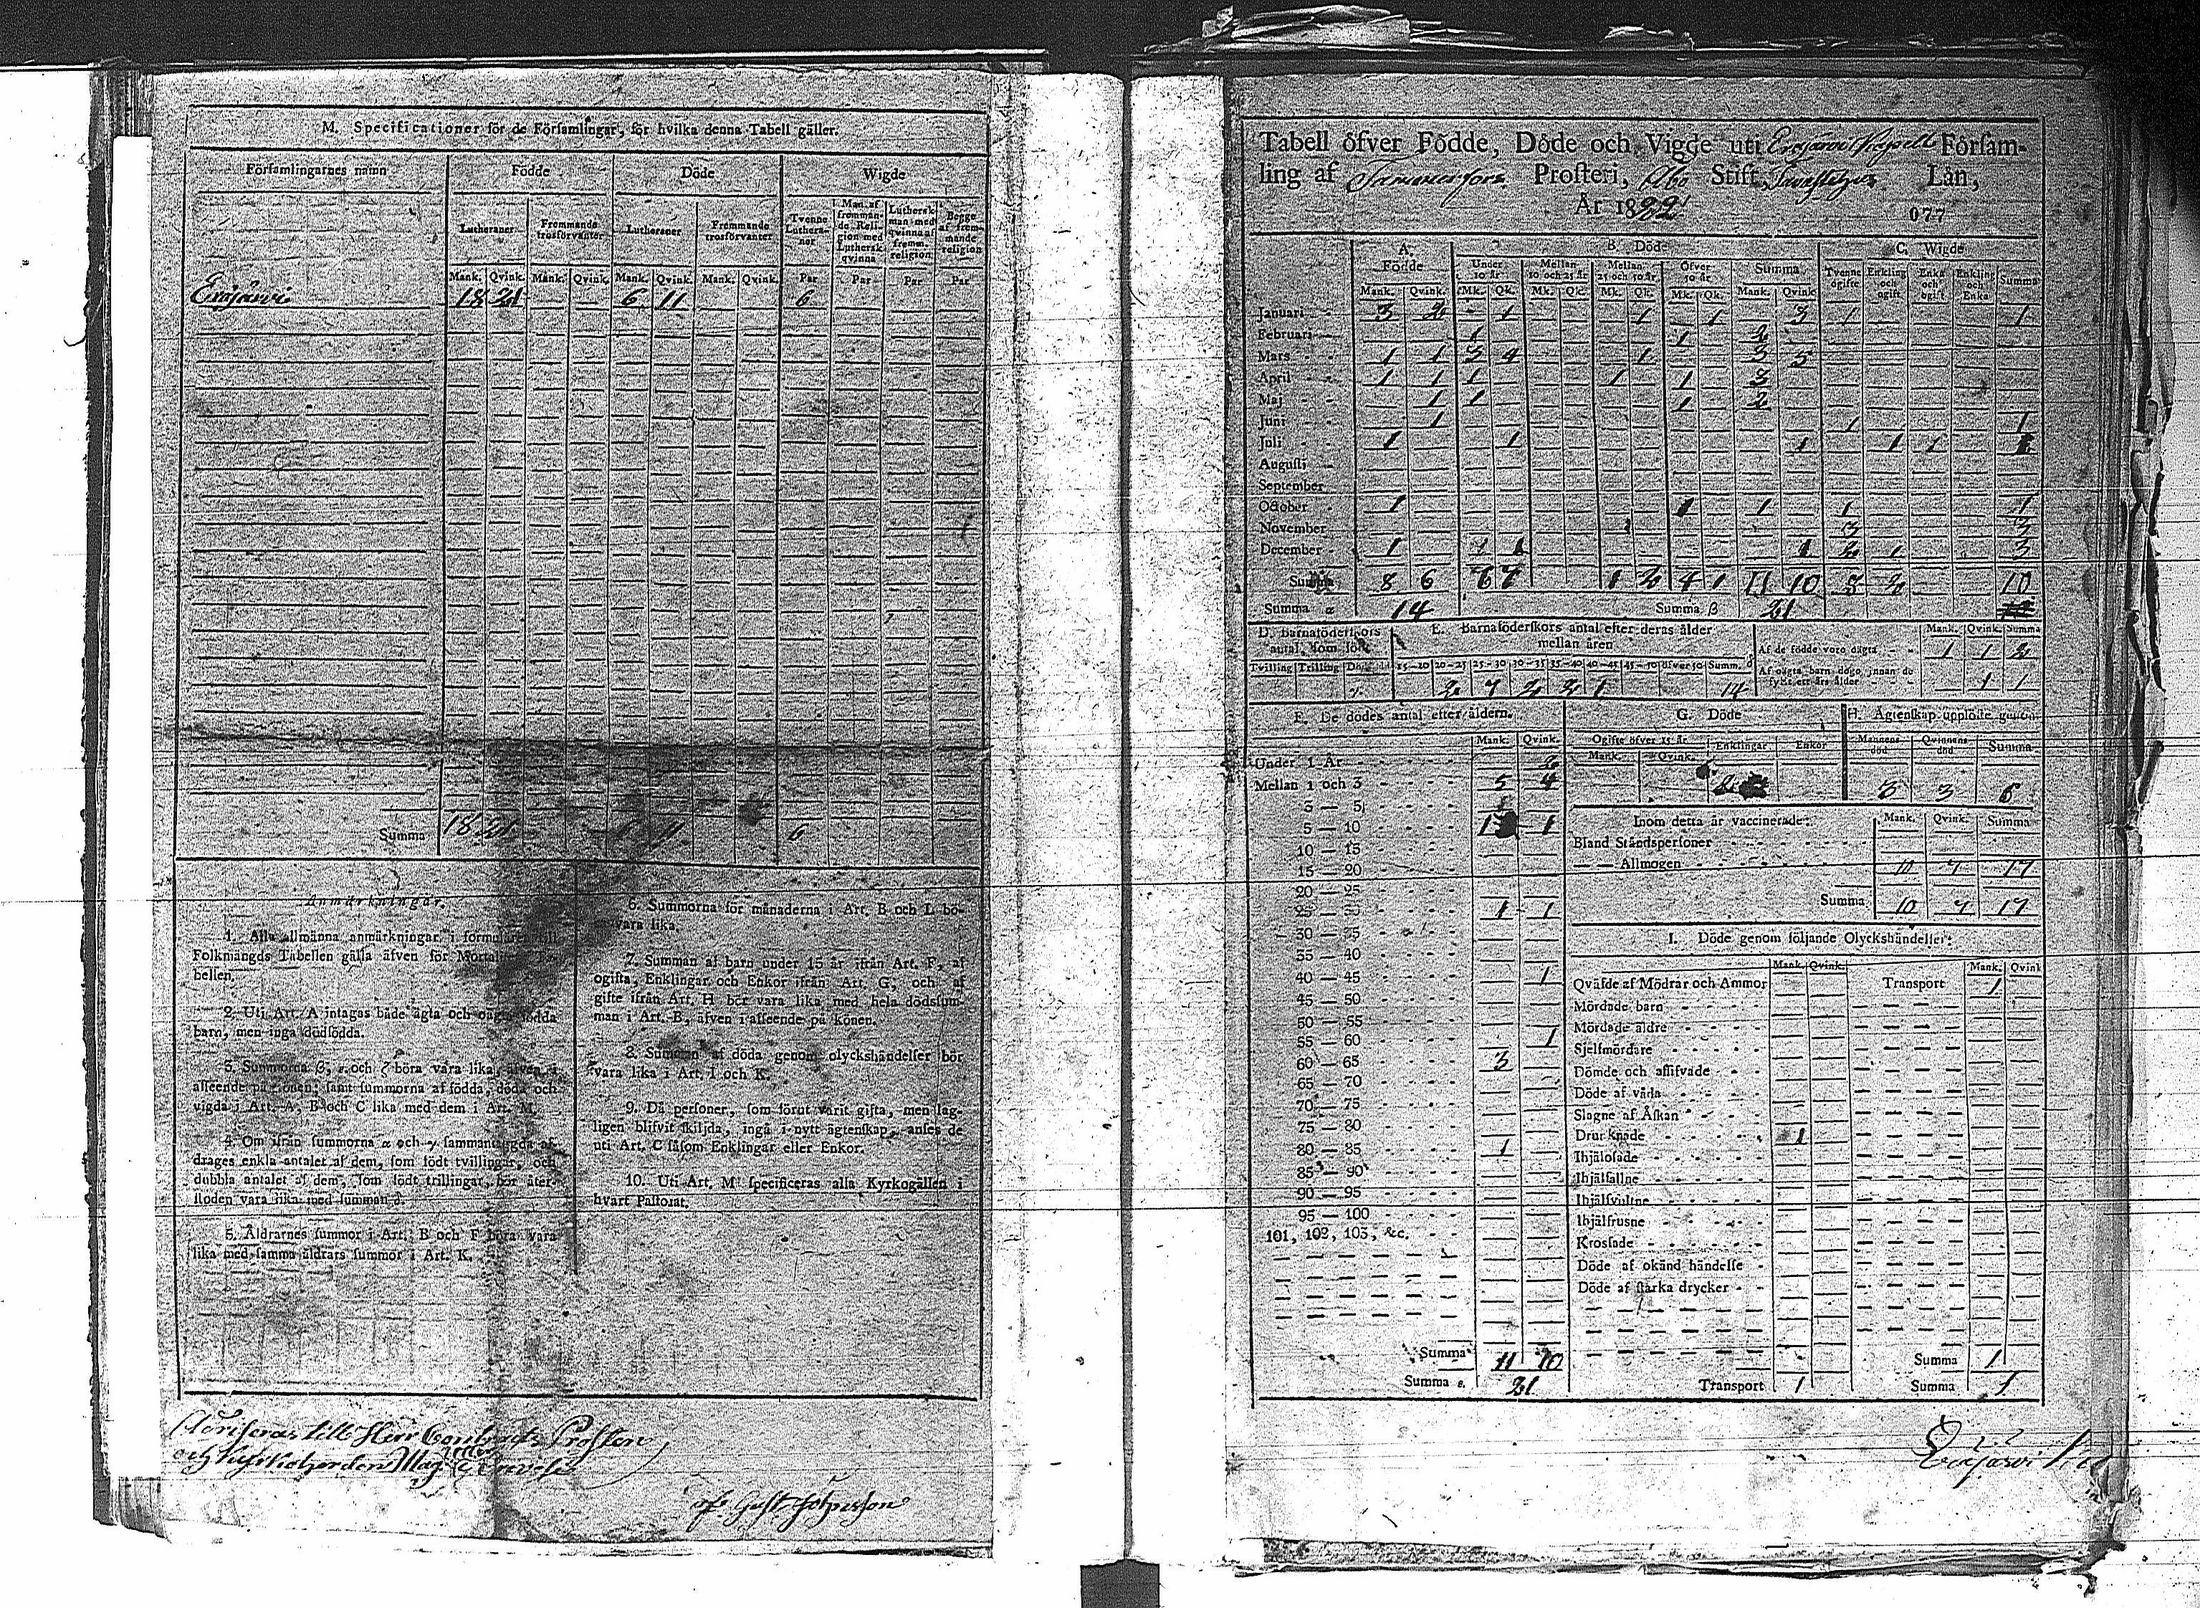 M. Specificationer för de Församlingar, för hvilka denna Tabell gäller.
Församlingarnes namn Födde Döde Wigde
Lutheraner Fremmande trosförvanter Lutheraner Fremmande trosförvanter Tvenne Lutheraner Man af fremmande Religion med Luthersk qvinna Luthersk man med qvinna af fremm. religion Begge af fremmande religion
Mank. Qvink. Mank. Qvink. Mank. Qvink. Mank. Qvink. Par Par Par Par
Erajärvi 18 21 6 11 6
Summa 18 21 6 11 6
Anmärkningar.
1. Alla allmänna anmärkningar i formuläret till
Folkmängds Tabellen gälla äfven för
bellen.
2. Uti Art. A intagas både ägta och oägta födda
barn, men inga dödfödda.
3. Summorna β, ε och ζ böra vara lika, äfven i
afseende på könen; samt summorna af födda, döda och
vigda i Art. A, B och C lika med dem i Art. M.
4. Om ifrån summorna α och γ sammanlagda af-
drages enkla antalet af dem, som födt tvillingar, och
dubbla antalet af dem, som födt trillingar, bör åter-
stoden vara lika med summan δ.
5. Åldrarnes summor i Art. B och F böra vara
lika med samma åldrars summor i Art. K.
6. Summorna för månaderna i Art. B och L bö-
ra vara lika.
7. Summan af barn under 15 år ifrån Art. F, af
ogifta, Enklingar och Enkor ifrån Art. G, och af
gifte ifrån Art. H bör vara lika med hela dödssum-
man i Art. B, äfven i afseende på könen.
8. Summan af döda genom olyckshändelser bör
vara lika i Art. I och K.
9. Då personer, som förut varit gifta, men lag-
ligen blifvit skiljda, ingå i nytt ägtenskap, anses de
uti Art. C såsom Enklingar eller Enkor.
10. Uti Art. M specificeras alla Kyrkogällen i
hvart Pastorat.
till Herr Contracts Prosten
och Kyrkoherden Mag
af Gust Johnsson
Tabell öfver Födde, Döde och Vigde uti Erajärvi Kapell Församling af Tammerfors Prosteri, Åbo Stift, Tavastehus Län,
År 1822
077
A. Födde B. Döde C. Wigde
Under 10 år Mellan 10 och 25 år Mellan 25 och 50 år Öfver 50 år Summa Tvenne ogifte Enkling och ogift Enka och ogift Enkling och Enka Summa
Mank. Qvink. Mk. Qk. Mk. Qk. Mk. Qk. Mk. Qk. Mank. Qvink.
Januari 3 2 1 1 1 3 1 1
Februari 1 1 2
Mars 1 1 3 4 1 3 5
April 1 1 1 1 1 3
Maj 1 1 1 2
Juni 1 1 1
Juli 1 1 1 1 1
Augusti
September
October 1 1 1 1 1
November 3 3
December 1 1 1 2 1 3
Summa 8 6 6 7 1 2 4 1 11 10 8 2 10
Summa α 14 Summa β 21
D. Barnaföderskors antal, som födt
Tvilling Trilling
E. Barnaföderskors antal efter deras ålder mellan åren
15-20 20-25 25-30 30-35 35-40 40-45 45-50 öfver 50 Summ. δ
2 7 2 2 1 14
Mank. Qvink. Summa
Af de födde voro oägta 1 1 2
Af oägta barn dogo innan de fyllt ett års ålder 1 1
F. De dödes antal efter åldern.
Mank. Qvink.
Under 1 År 2
Mellan 1 och 3 5 4
3 — 5
5 — 10 1 1
10 — 15
15 — 20
20 — 25
25 — 30 1 1
30 — 35
35 — 40
40 — 45 1
45 — 50
50 — 55
55 — 60 1
60 — 65 3
65 — 70
70 — 75
75 — 80
80 — 85 1
85 — 90
90 — 95
95 — 100
101, 102, 103, &c.
Summa 11 10
Summa ε. 21
G. Döde
Ogifte öfver 15 år Enklingar Enkor
Mank. Qvink.
2
H. Ägtenskap upplöste genom
Mannens död Qvinnans död Summa
3 3 6
Inom detta år vaccinerade: Mank. Qvink. Summa
Bland Ståndspersoner
— — Allmogen 10 7 17
Summa 10 7 17
I. Döde genom följande Olyckshändelser:
Mank. Qvink. Mank. Qvink
Qväfde af Mödrar och Ammor Transport 1
Mördade barn
Mördade äldre
Sjelfmördare
Dömde och aflifvade
Döde af våda
Slagne af Åskan
Drunknade 1
Ihjälosade
Ihjälfallne
Ihjälsvultne
Ihjälfrusne
Krossade
Döde af okänd händelse
Döde af starka drycker
Summa 1
Transport 1 Summa 1
Erajärvi